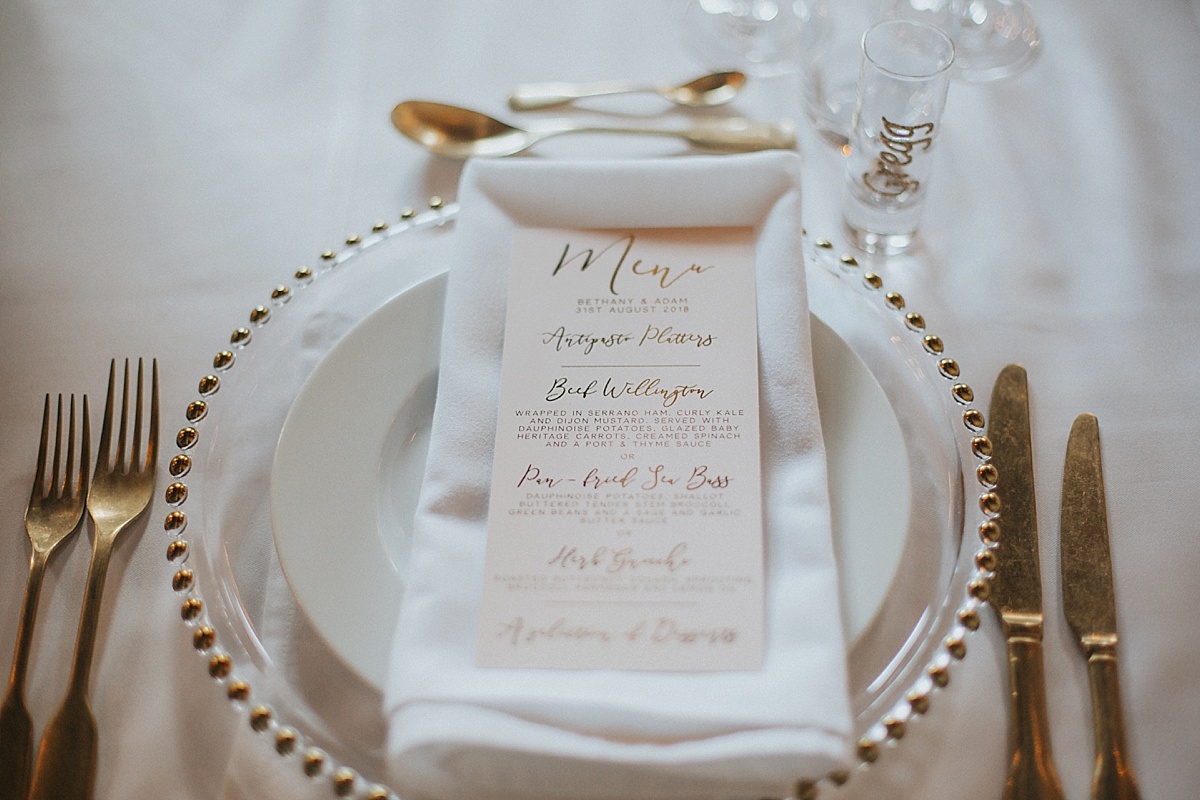 Menu
BETHANY & ADAM
31ST AUGUST 2018
Antipasto Platters
Beef Wellington
WRAPPED IN SERRANO HAM, CURLY KALE
AND DIJON MUSTARD. SERVED WITH
DAUPHINOISE POTATOES, GLAZED BABY
HERITAGE CARROTS, CREAMED SPINACH
AND A PORT & THYME SAUCE
OR
Pan-fried Sea Bass
DAUPHINOISE POTATOES, SHALLOT
BUTTERED TENDER STEM BROCCOLI,
GREEN BEANS AND A SAGE AND GARLIC
BUTTER SAUCE
OR
Herb Gnocchi
A selection of Desserts
Gregg